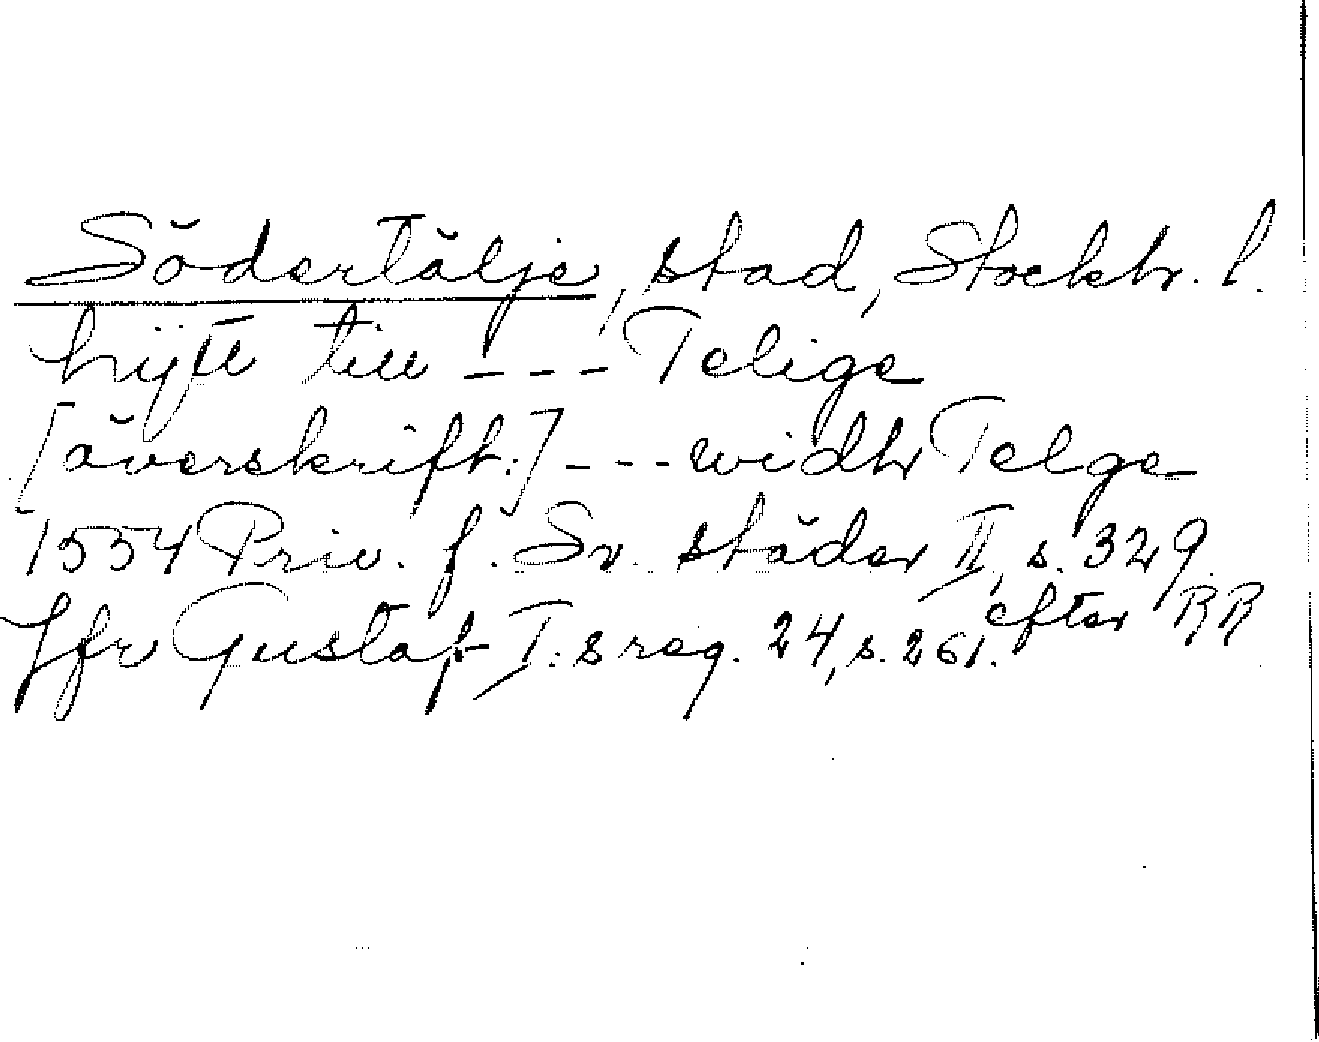 Södertälje, stad, Stockh. l.
hijtt till --- Telige
[överskrift:] --- widh Telge
1554 Priv. f. Sv. städer II, s. 329
efter RR
Jfr Gustaf I:s reg. 24, s. 261.